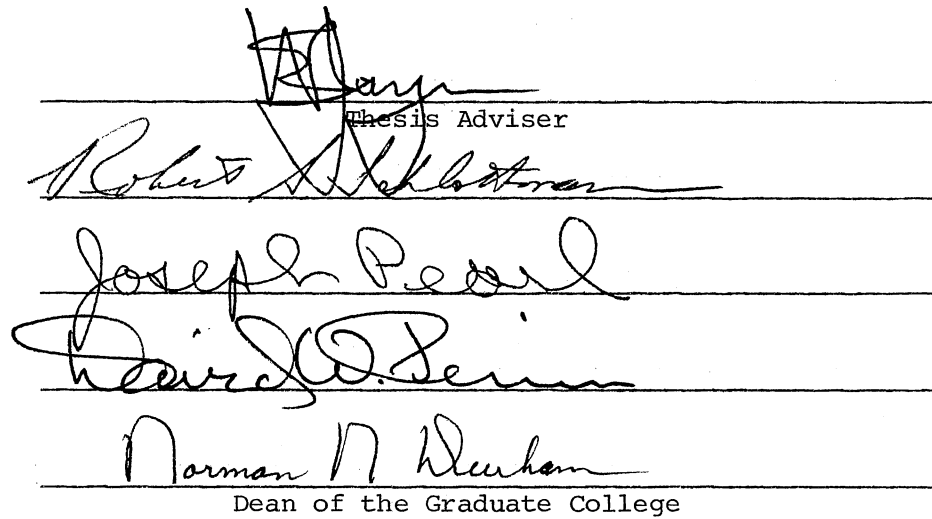 Thesis Adviser
Robert S. Schlottman
Joseph Pearl
David W.
Norman N Durham
Dean of the Graduate College